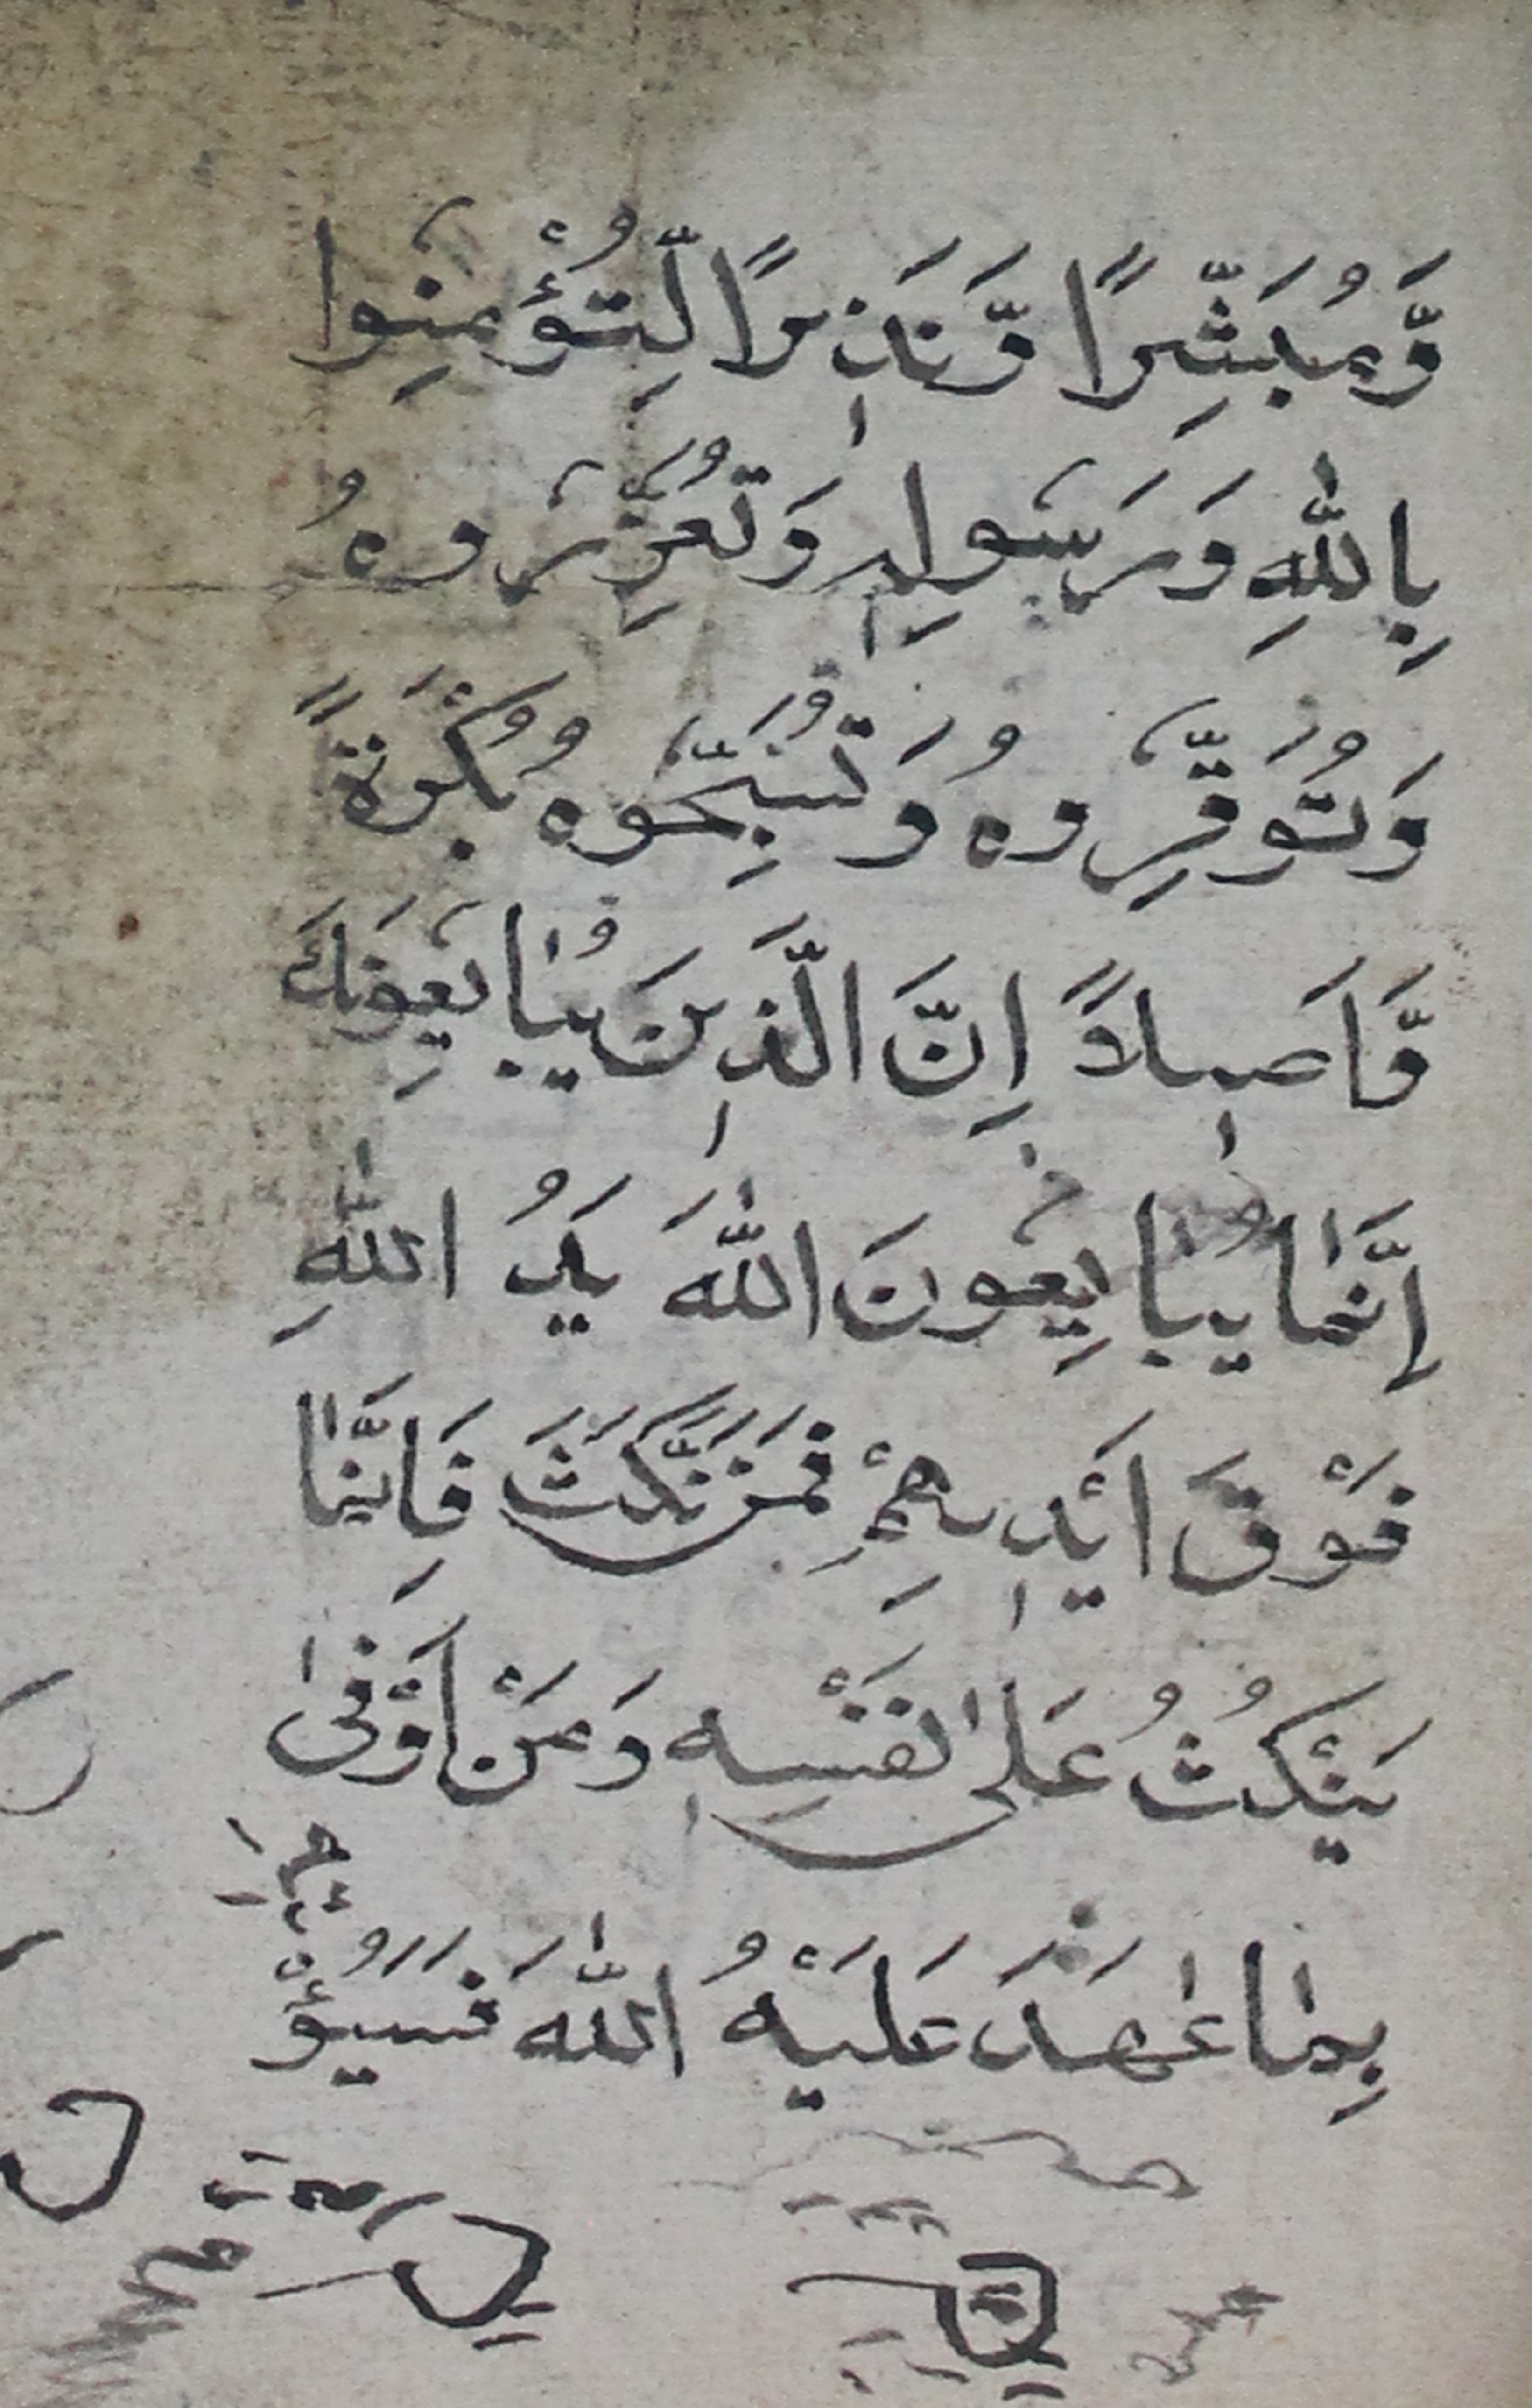 وَّمُبَشِّرًا وَّنَذِيرًا لِّتُؤْمِنُوا
بِاللّٰهِ وَرَسُولِهٖ وَتُعَزِّرُوهُ
وَتُوَقِّرُوهُ وَتُسَبِّحُوهُ بُكْرَةً
وَّاَصِيلاً اِنَّ الَّذِينَ يُبَايِعُونَكَ
اِنَّمَا يُبَايِعُونَ اللّٰهَ يَدُ اللّٰهِ
فَوْقَ اَيْدِيهِمْ فَمَنْ نَّكَثَ فَاِنَّمَا
يَنْكُثُ عَلٰى نَفْسِهٖ وَمَنْ اَوْفٰى
بِمَا عٰهَدَ عَلَيْهُ اللّٰهَ فَسَيُؤْ